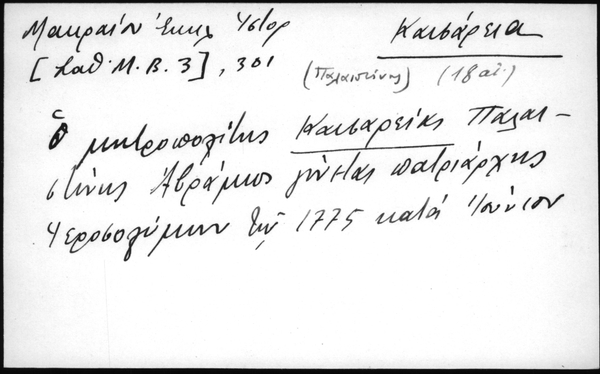 Μακραίον Ἐκκλ Ἱστορ
Καισάρεια
[Σαθ. Μ.Β. 3], 301
(Παλαιστίνης) (18 αἰ.)
Ὁ μητροπολίτης Καισαρείας Παλαι-
στίνης Ἀβράμιος γίνεται πατριάρχης
Ἱεροσολύμων τῷ 1775 κατά Ἰούνιον